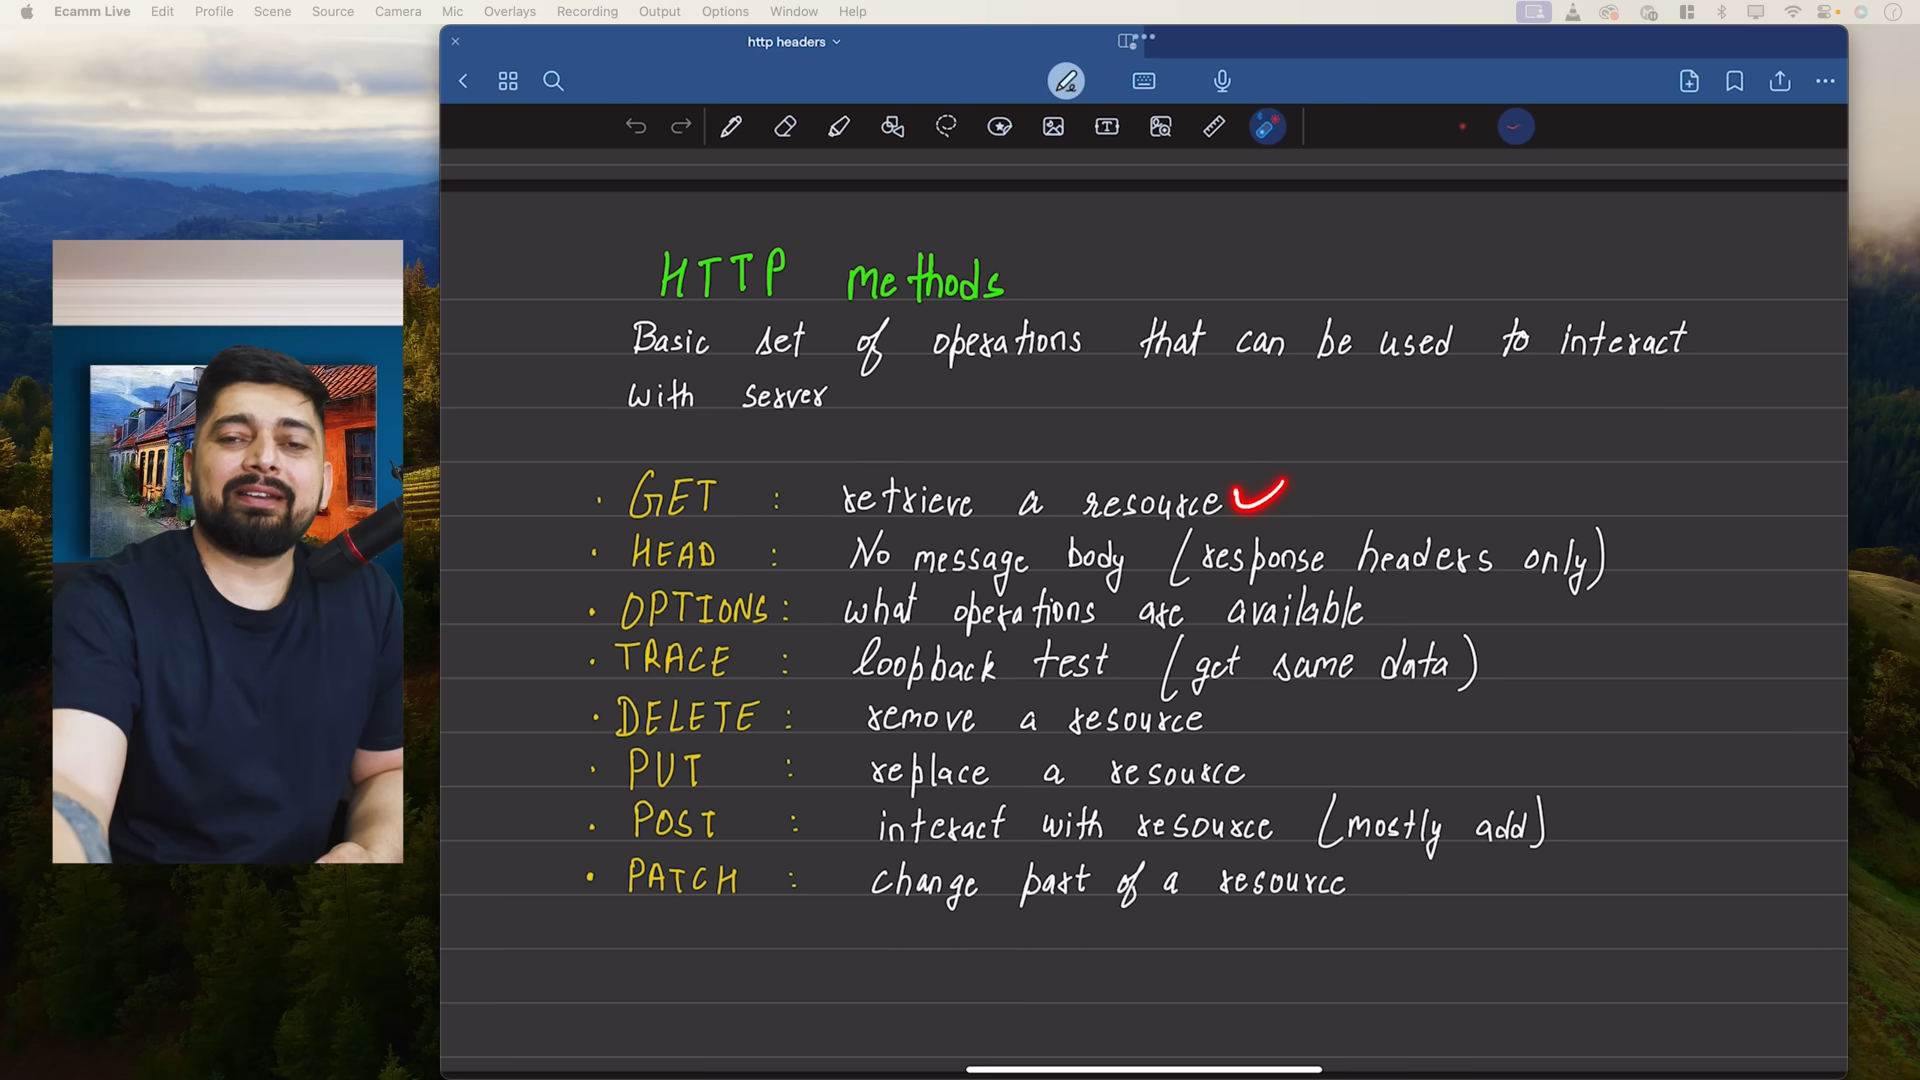 Ecamm Live Edit Profile Scene Source Camera Mic Overlays Recording Output Options Window Help
http headers
HTTP Methods
Basic set of operations that can be used to interact
with server
· GET : retrieve a resource
· HEAD : No message body (response headers only)
· OPTIONS : what operations are available
· TRACE : loopback test (get same data)
· DELETE : remove a resource
· PUT : replace a resource
· POST : interact with resource (mostly add)
· PATCH : change part of a resource